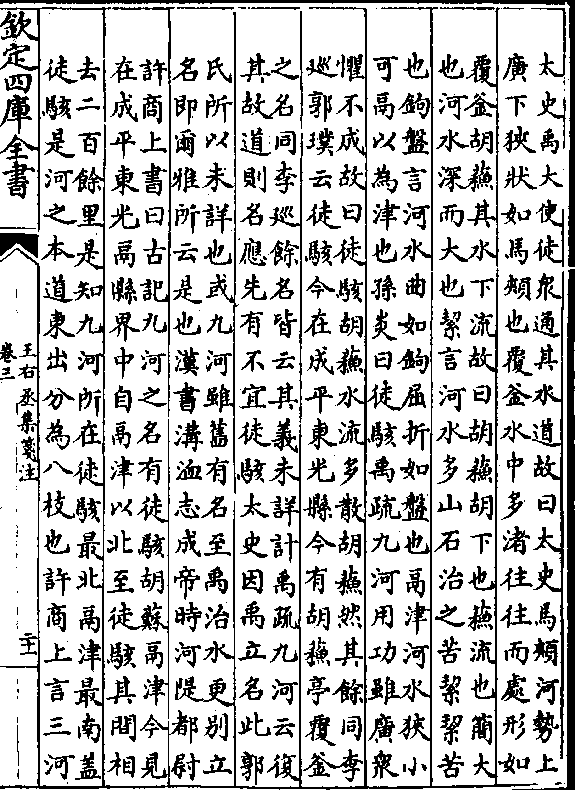 太史禹大使徒衆通其水道故曰太史馬頰河勢上
廣下狹狀如馬頰也覆釡水中多渚往往而處形如
覆釡胡蘓其水下流故曰胡蘓胡下也蘓流也簡大
也河水深而大也絜言河水多山石治之苦絜絜苦
也鉤盤言河水曲如鉤屈折如盤也鬲津河水狹小
可鬲以為津也孫炎曰徒駭禹疏九河用功雖廣衆
懼不成故曰徒駭胡蘓水流多散胡蘓然其餘同李
巡郭璞云徒駭今在成平東光縣今有胡蘓亭覆釡
之名同李巡餘名皆云其義未詳計禹疏九河云復
其故道則名應先有不宜徒駭太史因禹立名此郭
氏所以未詳也或九河雖舊有名至禹治水更別立
名即爾雅所云是也漢書溝洫志成帝時河隄都尉
許商上書曰古記九河之名有徒駭胡蘇鬲津今見
在成平東光鬲縣界中自鬲津以北至徒駭其間相
去二百餘里是知九河所在徒駭最北鬲津最南盖
徒駭是河之本道東出分為八枝也許商上言三河
欽定四庫全書
王右丞集箋注
卷三